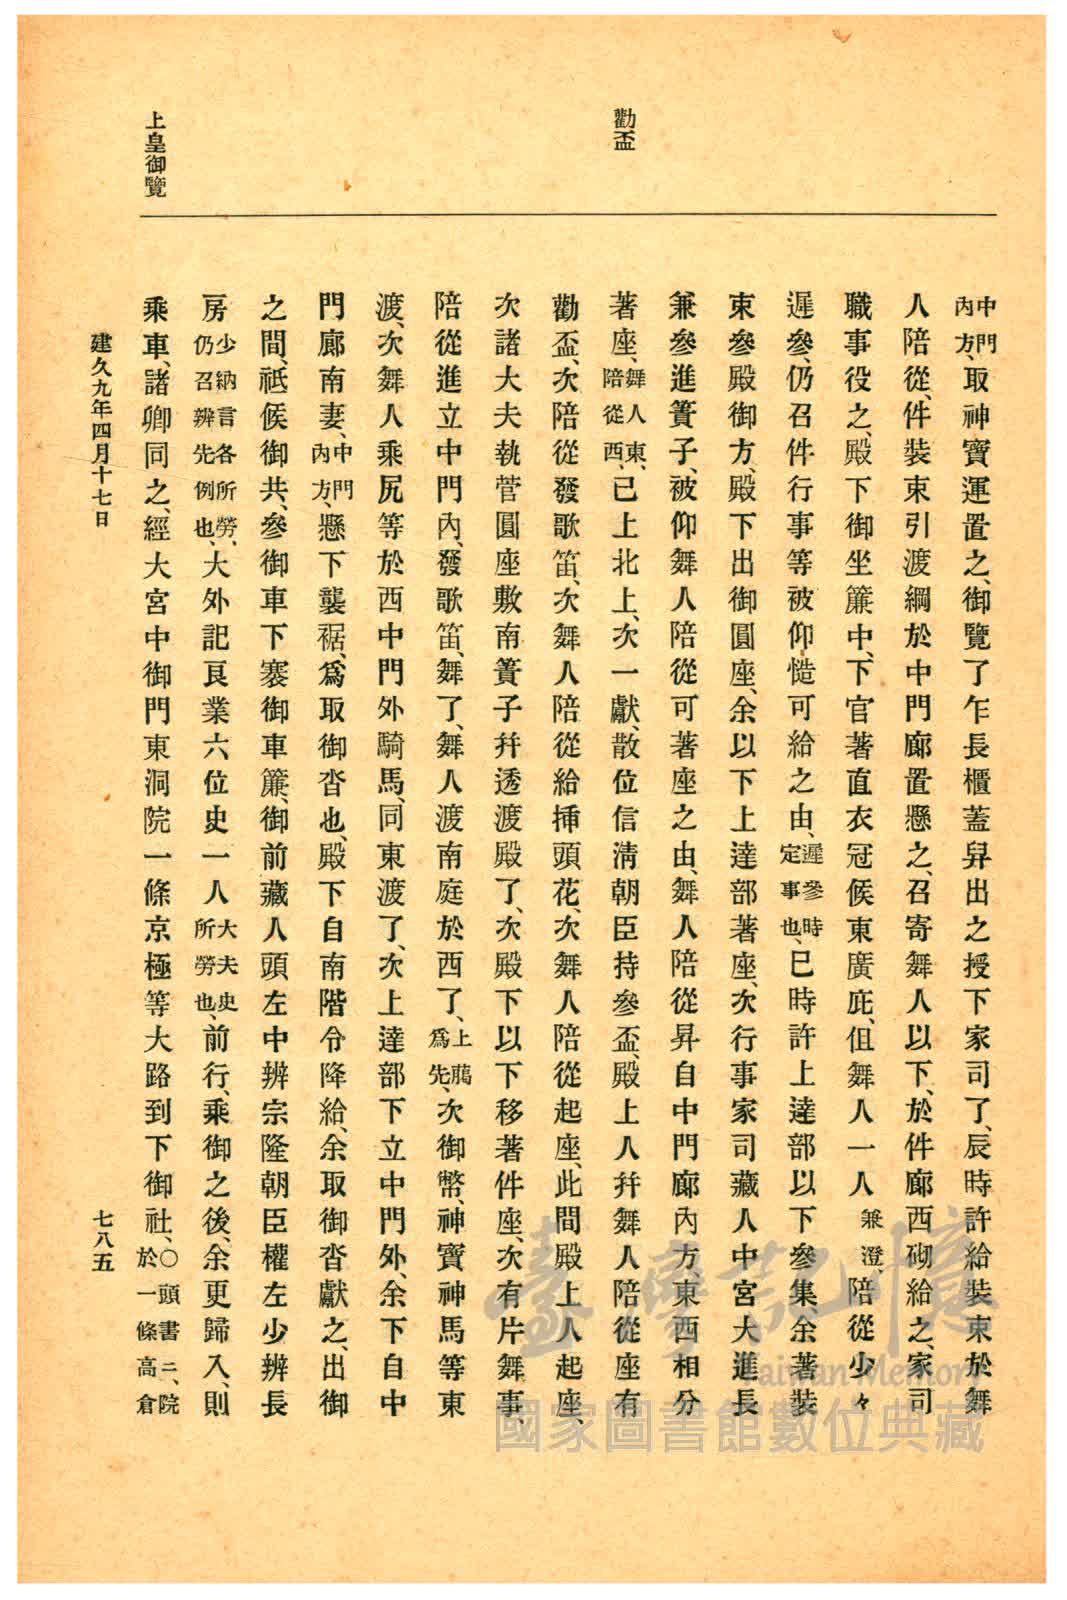 勸盃
上皇御覽
中門內方、取神寶運置之、御覽了乍長櫃蓋舁出之授下家司了、辰時許給裝束於舞
人陪從、件裝束引渡綱於中門廊置懸之、召寄舞人以下、於件廊西砌給之、家司
職事役之、殿下御坐簾中、下官著直衣冠候東廣庇、但舞人一人兼澄、陪從少々
遲參、仍召件行事等被仰慥可給之由、遲參時定事也、巳時許上達部以下參集、余著裝
束參殿御方、殿下出御圓座、余以下上達部著座、次行事家司藏人中宮大進長
兼參進簀子、被仰舞人陪從可著座之由、舞人陪從昇自中門廊內方、東西相分
著座、舞人東、陪從西、已上北上、次一獻、散位信淸朝臣持參盃、殿上人幷舞人陪從座有
勸盃、次陪從發歌笛、次舞人陪從給挿頭花、次舞人陪從起座、此間殿上人起座、
次諸大夫執菅圓座敷南簀子幷透渡殿了、次殿下以下移著件座、次有片舞事、
陪從進立中門內、發歌笛、舞了、舞人渡南庭於西了、上﨟爲先、次御幣、神寶神馬等東
渡、次舞人乘尻等於西中門外騎馬、同東渡了、次上達部下立中門外、余下自中
門廊南妻、中門內方、懸下襲裾、爲取御沓也、殿下自南階令降給、余取御沓獻之、出御
之間、祗候御共、參御車下褰御車簾、御前藏人頭左中辨宗隆朝臣權左少辨長
房少納言各所勞、仍召辨先例也、大外記良業六位史一人大夫史所勞也、前行、乘御之後、余更歸入、則
乘車、諸卿同之、經大宮中御門東洞院一條京極等大路到下御社、○頭書ニ、院於一條高倉
建久九年四月十七日
七八五
臺灣記憶
Taiwan Memory
國家圖書館數位典藏